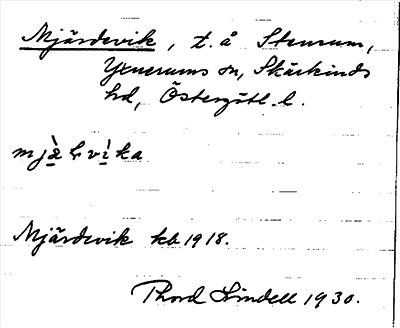 Mjärdevik, t. å Stensum,
Yxnerums sn, Skärkinds
hd, Östergötl. l.
mjæ̀ɽvìka
Mjärdevik kb 1918.
Thord Lindell 1930.